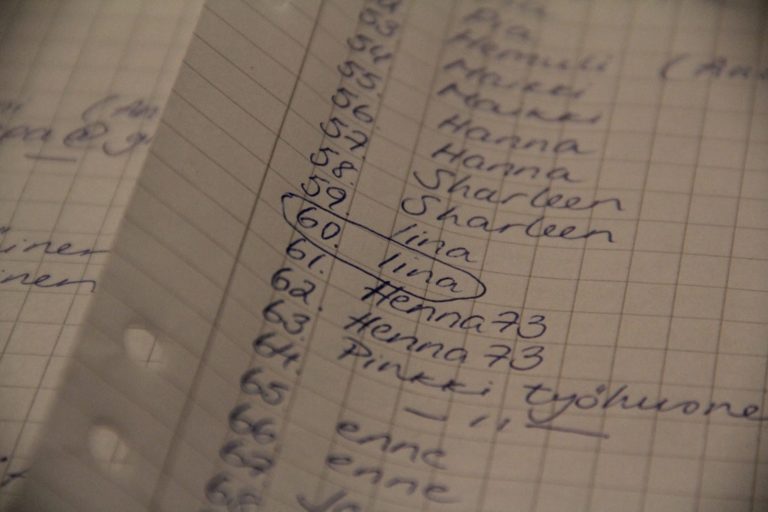 pa@g
inen
nen
Pia
Hemuli (An
53 Maikki
54 Maikki
55 Hanna
56 Hanna
57 Sharleen
58. Sharleen
59. Iina
60. Iina
61. Henna73
62. Henna 73
63. Pinkki työhuone
64. — " —
65 enne
66 enne
67
68